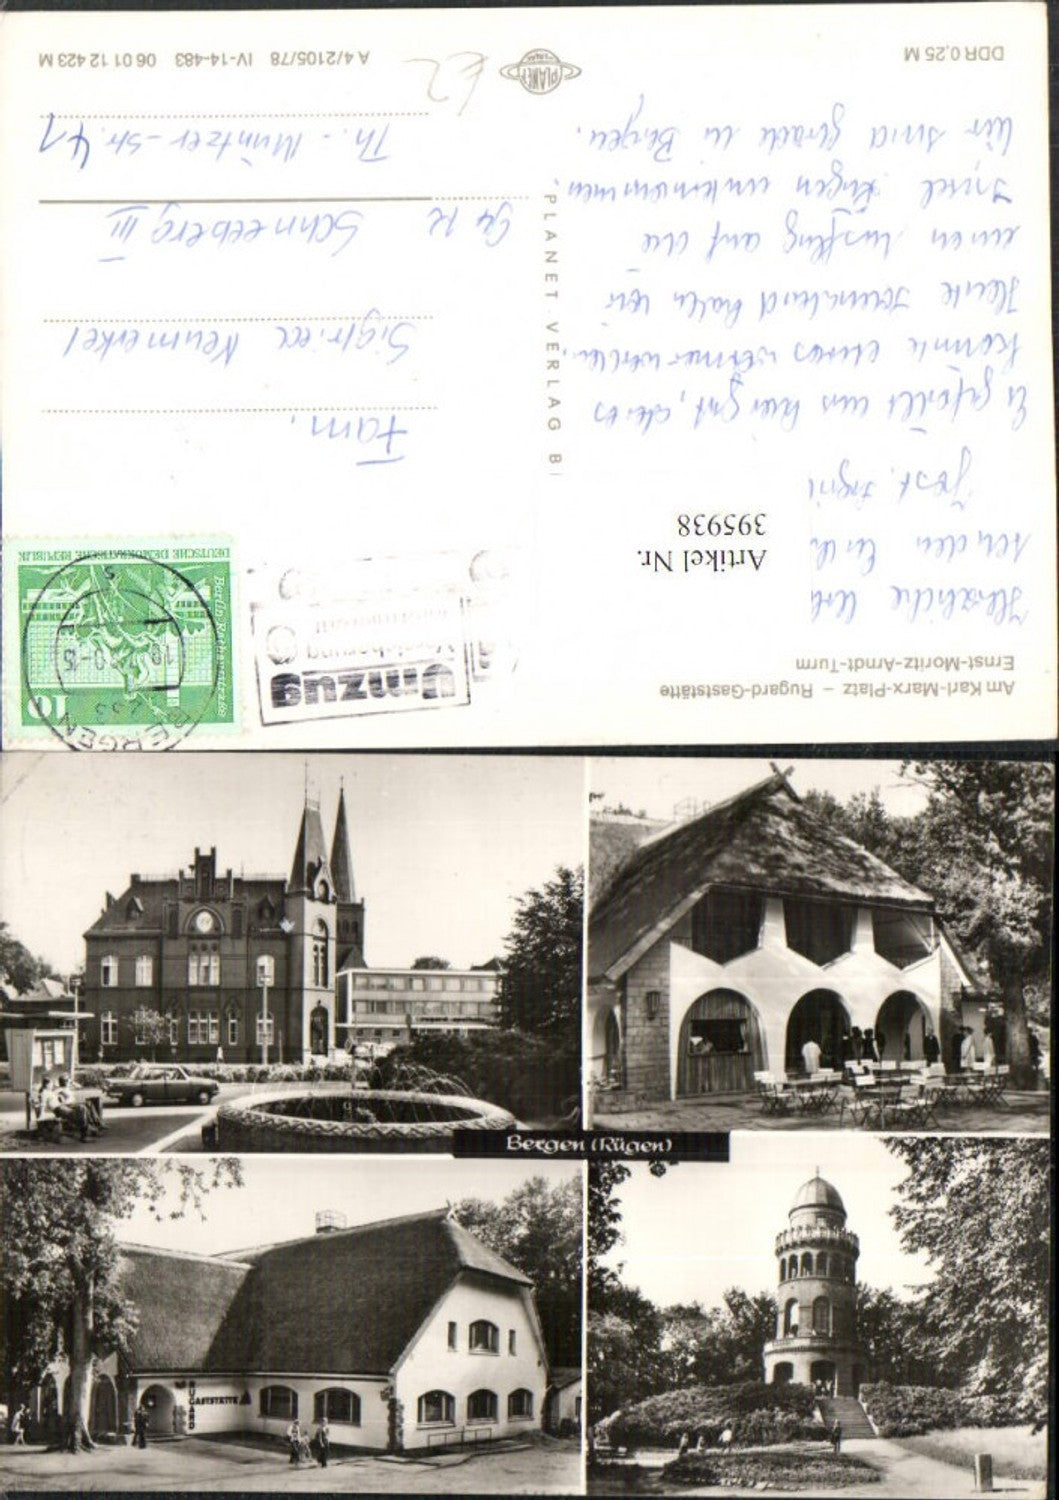 Am Karl-Marx-Platz – Rugard-Gaststätte
Ernst-Moritz-Arndt-Turm
Herzliche
senden Euch
Artikel Nr.
395938
Es gefällt uns hier gut,
könnte etwas wärmer werden.
Heute haben wir
einen Ausflug auf die
Insel Rügen unternommen.
Wir sind gerade in Bergen.
DDR 0,25 M
PLANET-VERLAG B
PLANET
Umzug
Versicherung
BERGEN
DEUTSCHE DEMOKRATISCHE REPUBLIK
Berlin
10
Fam.
Sigfried Neumerkel
94 12 Schneeberg III
Th.-Müntzer-Str. 41
A 4/2105/78 IV-14-483 06 01 12 423 M
Bergen (Rügen)
RUGARD
GASTSTÄTTE